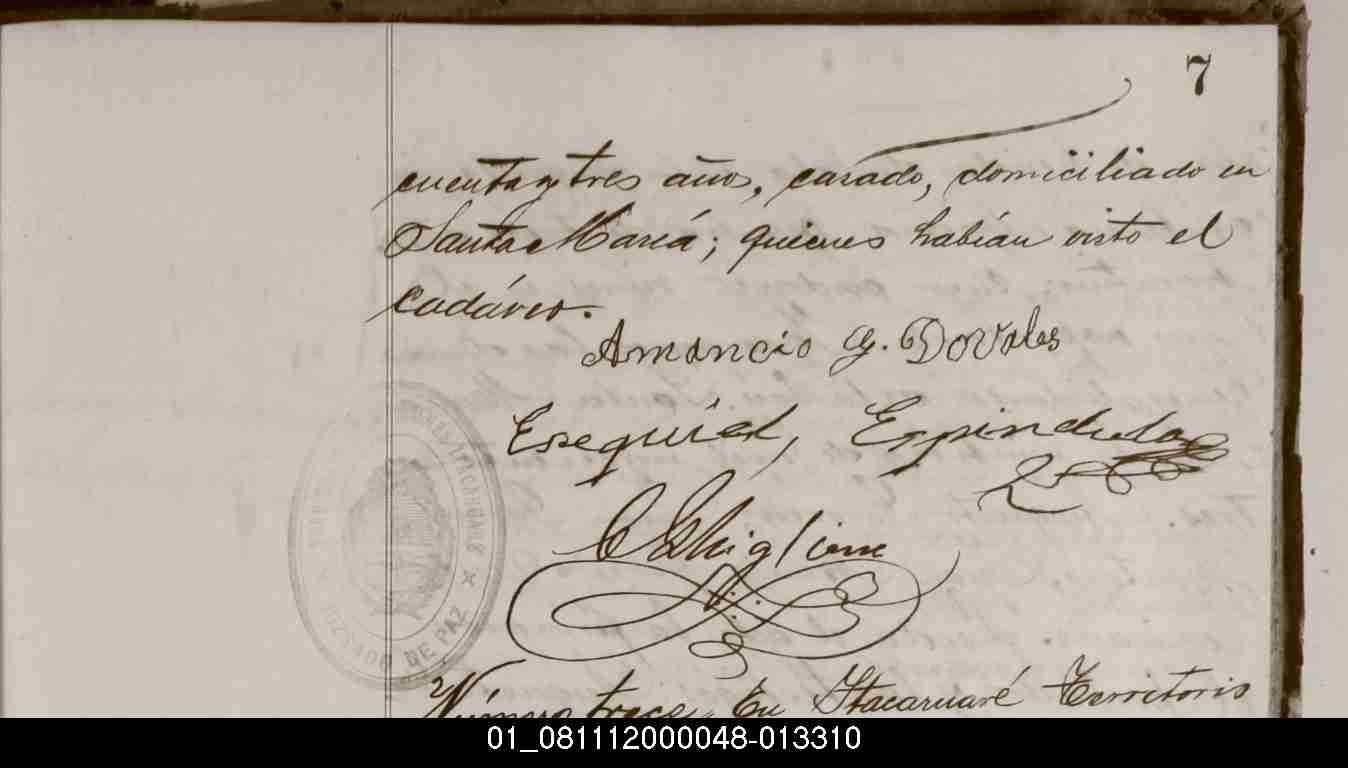 7
cuenta y tres años, casado, domiciliado en
Santa María; quienes habían visto el
cadáver.
Amancio G. Dovales
Esequiel, Espindula
Ghiglione
JUZGADO DE PAZ
Número trece. En Itacaruaré Territorio
01_081112000048-013310